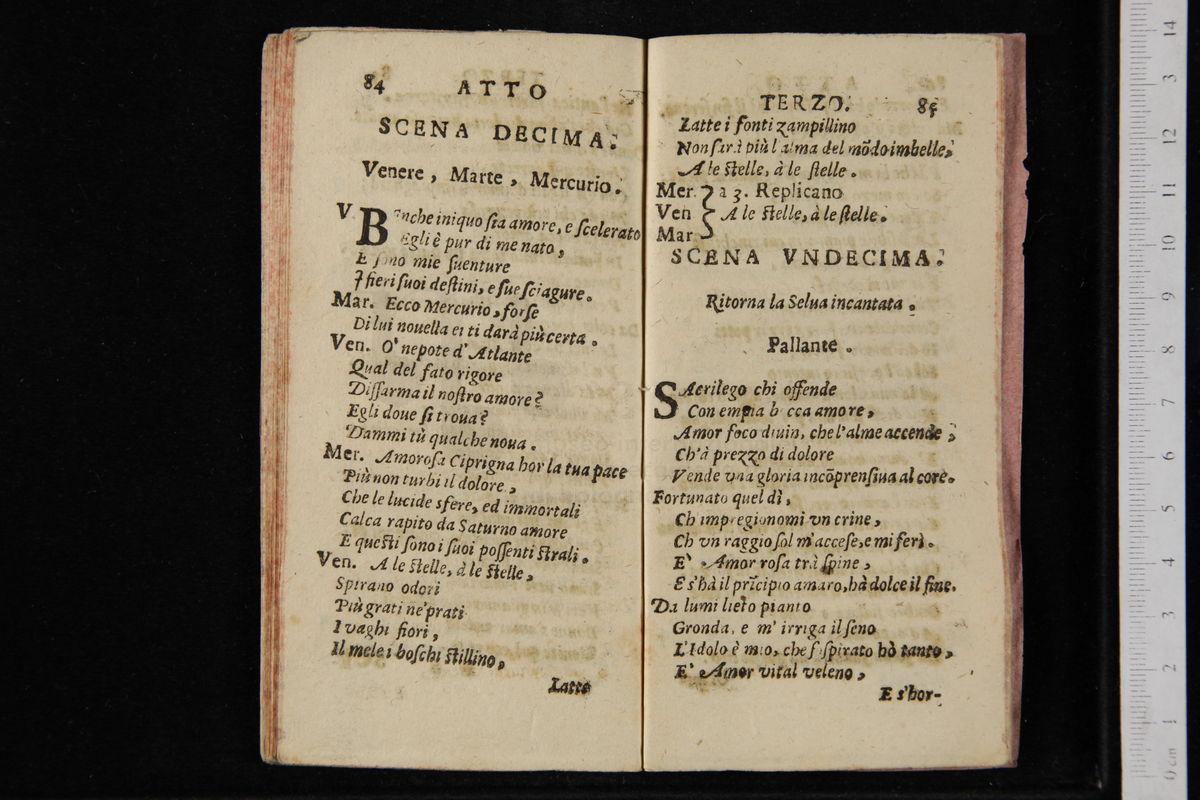 84 ATTO
SCENA DECIMA.
Venere, Marte, Mercurio.
V. BEnche iniquo ſia amore, e ſcelerato
Egli è pur di me nato,
E ſono mie ſuenture
I fieri ſuoi deſtini, e ſue ſciagure.
Mar. Ecco Mercurio, forſe
Di lui nouella ei ti darà più certa.
Ven. O' nepote d'Atlante
Qual del fato rigore
Diſſarma il noſtro amore?
Egli doue ſi troua?
Dammi tù qualche noua.
Mer. Amoroſa Ciprigna hor la tua pace
Più non turbi il dolore,
Che le lucide sfere, ed immortali
Calca rapito da Saturno amore
E queſti ſono i ſuoi poſſenti ſtrali.
Ven. A le ſtelle, à le ſtelle,
Spirano odori
Più grati ne'prati
I vaghi fiori,
Il mele i boſchi ſtillino,
Latte
TERZO. 85
Latte i fonti zampillino
Non ſarà più l'alma del mōdo imbelle,
A le ſtelle, à le ſtelle.
Mer. } a 3. Replicano
Ven } A le ſtelle, à le ſtelle.
Mar }
SCENA VNDECIMA.
Ritorna la Selua incantata.
Pallante.
SAcrilego chi offende
Con empia bocca amore,
Amor foco diuin, che l'alme accende,
Ch'à prezzo di dolore
Vende vna gloria incōprenſiua al core.
Fortunato quel dì,
Ch impregionomi vn crine,
Ch vn raggio ſol m'acceſe, e mi ferì.
E' Amor roſa trà ſpine,
E s'hà il prīcipio amaro, hà dolce il fine.
Da lumi lieto pianto
Gronda, e m'irriga il ſeno
L'Idolo è mio, che ſoſpirato hò tanto,
E' Amor vital veleno,
E s'hor-
14
13
12
11
10
9
8
7
6
5
4
3
2
1
0 cm